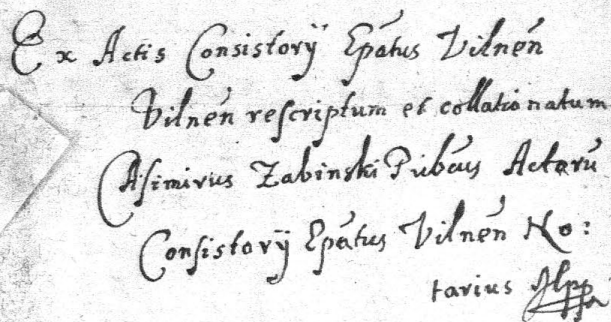 Ex Actis Consistorÿ Epãtus Vilnen̄
Vilnen̄ rescriptum et collationatum
Casimirus Zabinski Pubcus Actorū
Consistorij Epãtus Vilnen̄ No:
tarius